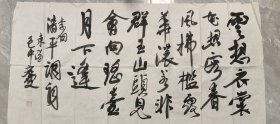 雲想衣裳
花想容春
風拂檻露
華濃若非
群玉山頭見
會向瑤臺
月下逢
李白
清平調詞